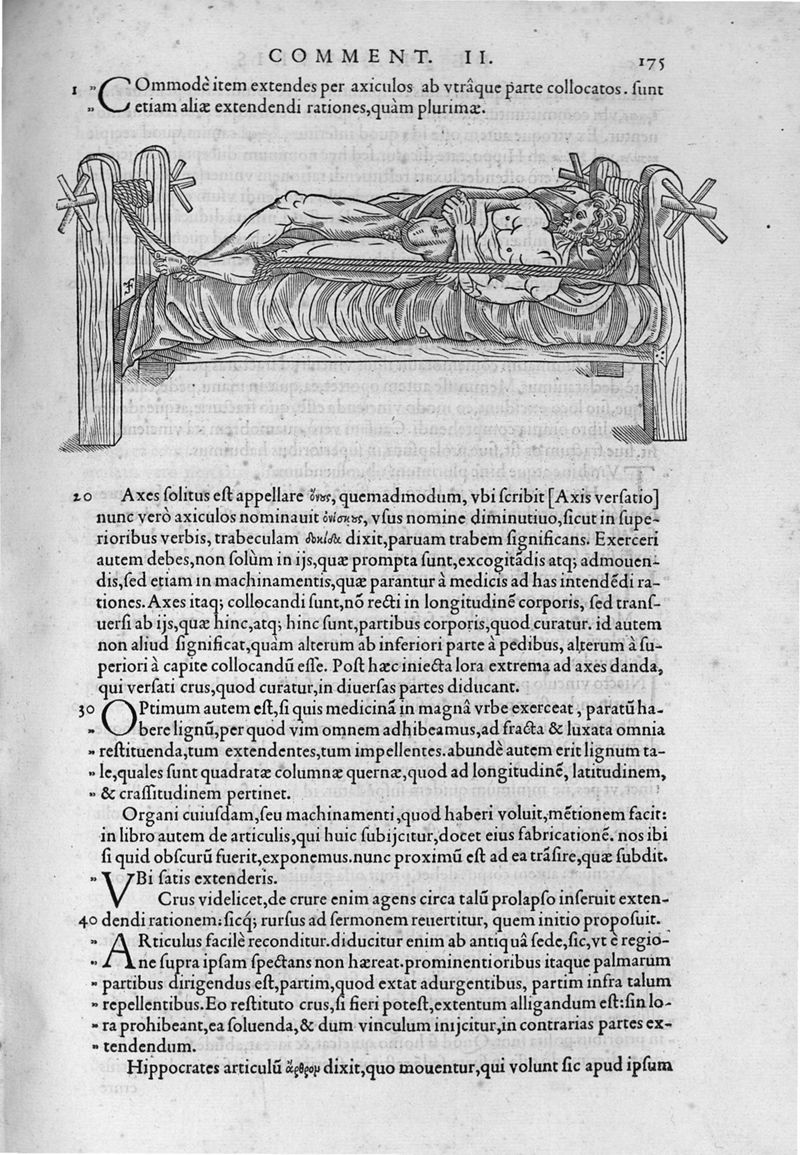 COMMENT. II. 175
1 „ COmmodè item extendes per axiculos ab vtrâque parte collocatos. ſunt
„ etiam aliæ extendendi rationes,quàm plurimæ.
20 Axes ſolitus eſt appellare ὄνους, quemadmodum, vbi ſcribit [Axis verſatio]
nunc verò axiculos nominauit ὀνίσκους, vſus nomine diminutiuo,ſicut in ſupe-
rioribus verbis, trabeculam δοκίδα dixit,paruam trabem ſignificans. Exerceri
autem debes,non ſolùm in ijs,quæ prompta ſunt,excogitãdis atq; admouen-
dis,ſed etiam in machinamentis,quæ parantur à medicis ad has intendẽdi ra-
tiones.Axes itaq; collocandi ſunt,nõ recti in longitudinẽ corporis, ſed tranſ-
uerſi ab ijs,quæ hinc,atq; hinc ſunt,partibus corporis,quod curatur. id autem
non aliud ſignificat,quàm alterum ab inferiori parte à pedibus, alterum à ſu-
periori à capite collocandũ eſſe. Poſt hæc iniecta lora extrema ad axes danda,
qui verſati crus,quod curatur,in diuerſas partes diducant.
30 OPtimum autem eſt,ſi quis medicinã in magnâ vrbe exerceat, paratũ ha-
„ bere lignũ,per quod vim omnem adhibeamus,ad fracta & luxata omnia
„ reſtituenda,tum extendentes,tum impellentes.abundè autem erit lignum ta-
„ le,quales ſunt quadratæ columnæ quernæ,quod ad longitudinẽ, latitudinem,
„ & craſſitudinem pertinet.
Organi cuiuſdam,ſeu machinamenti,quod haberi voluit,mẽtionem facit:
in libro autem de articulis,qui huic ſubijcitur,docet eius fabricationẽ. nos ibi
ſi quid obſcurũ fuerit,exponemus.nunc proximũ eſt ad ea trãſire,quæ ſubdit.
„ VBi ſatis extenderis.
Crus videlicet,de crure enim agens circa talũ prolapſo inſeruit exten-
40 dendi rationem:ſicq́; rurſus ad ſermonem reuertitur, quem initio propoſuit.
„ ARticulus facilè reconditur.diducitur enim ab antiquâ ſede,ſic,vt è regio-
„ ne ſupra ipſam ſpectans non hæreat.prominentioribus itaque palmarum
„ partibus dirigendus eſt,partim,quod extat adurgentibus, partim infra talum
„ repellentibus.Eo reſtituto crus,ſi fieri poteſt,extentum alligandum eſt:ſin lo-
„ ra prohibeant,ea ſoluenda,& dum vinculum inijcitur,in contrarias partes ex-
„ tendendum.
Hippocrates articulũ ἄρθρον dixit,quo mouentur,qui volunt ſic apud ipſum